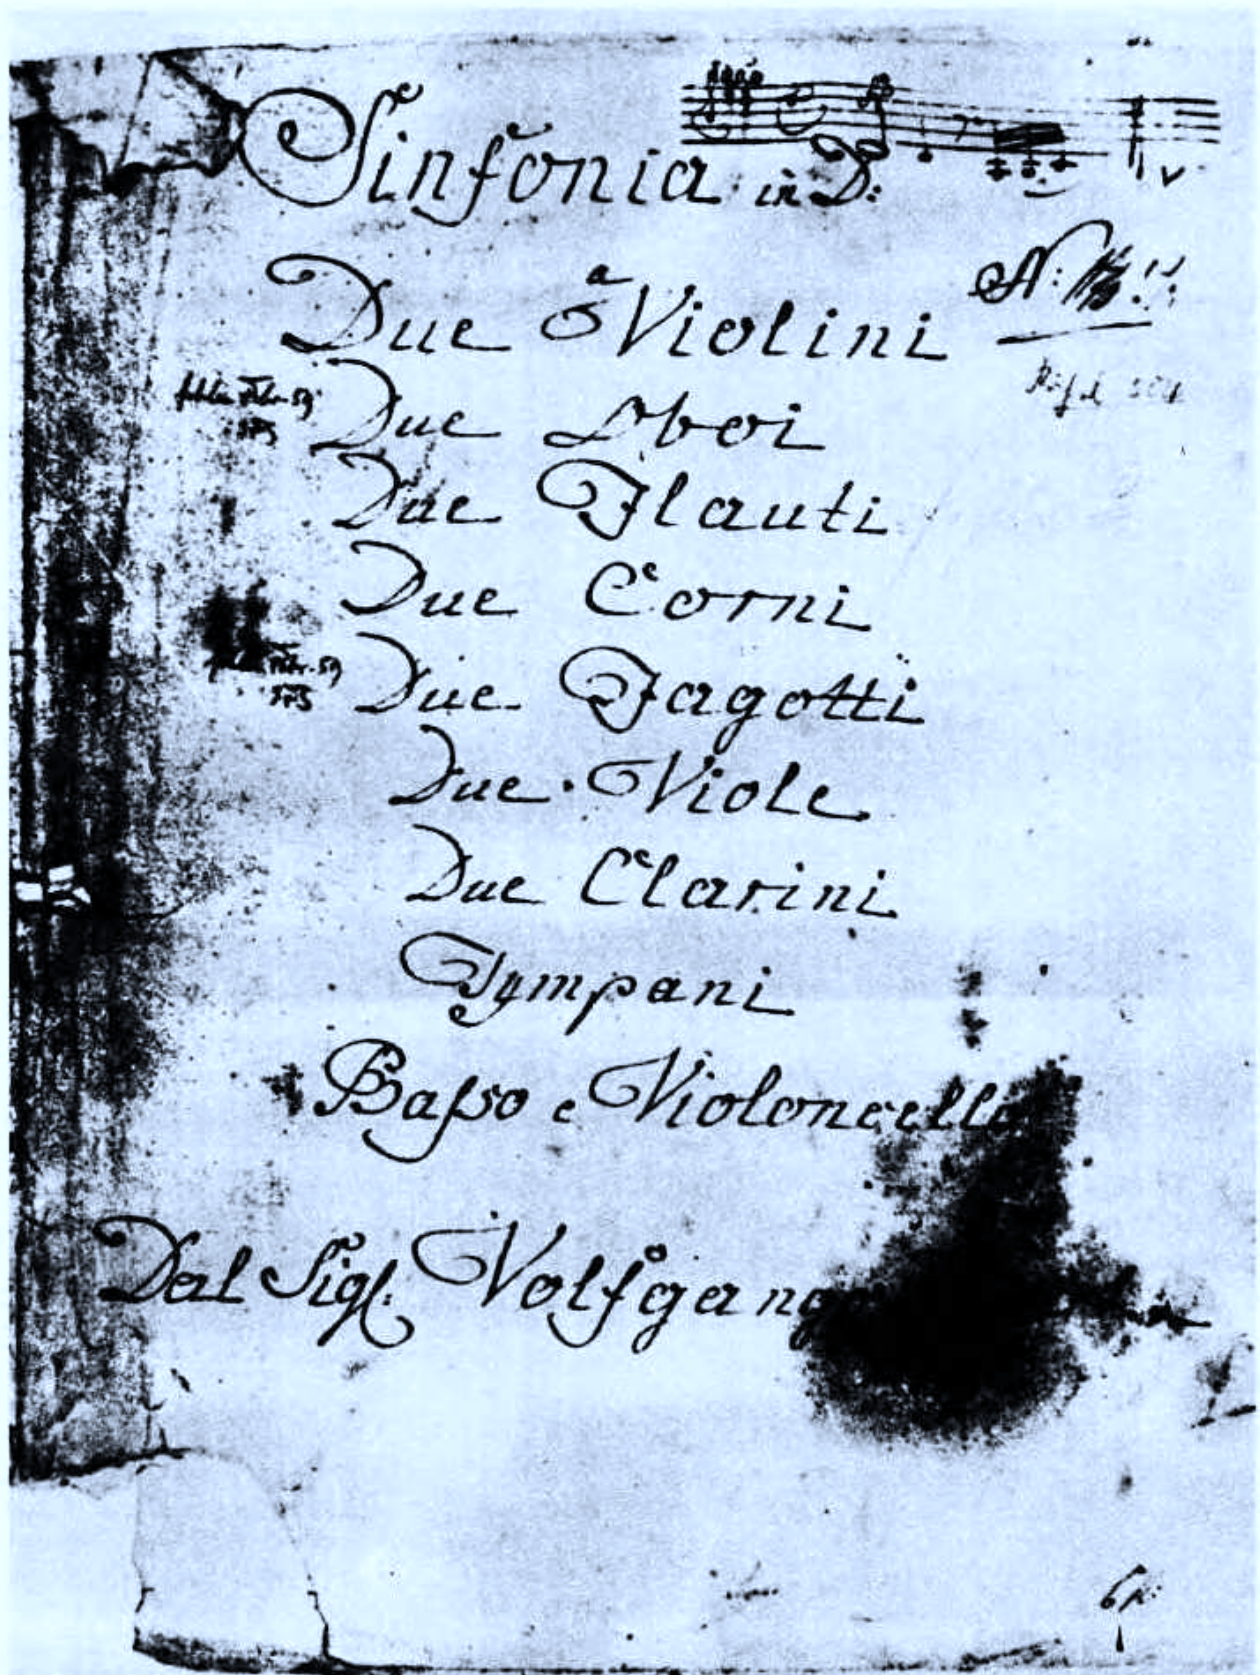 Sinfonia in D:
a
Due Violini
Due Oboi
Due Flauti
Due Corni
Due Fagotti
Due Viole
Due Clarini
Tympani
Baſso e Violoncello
Dal Sigl. Volfgang